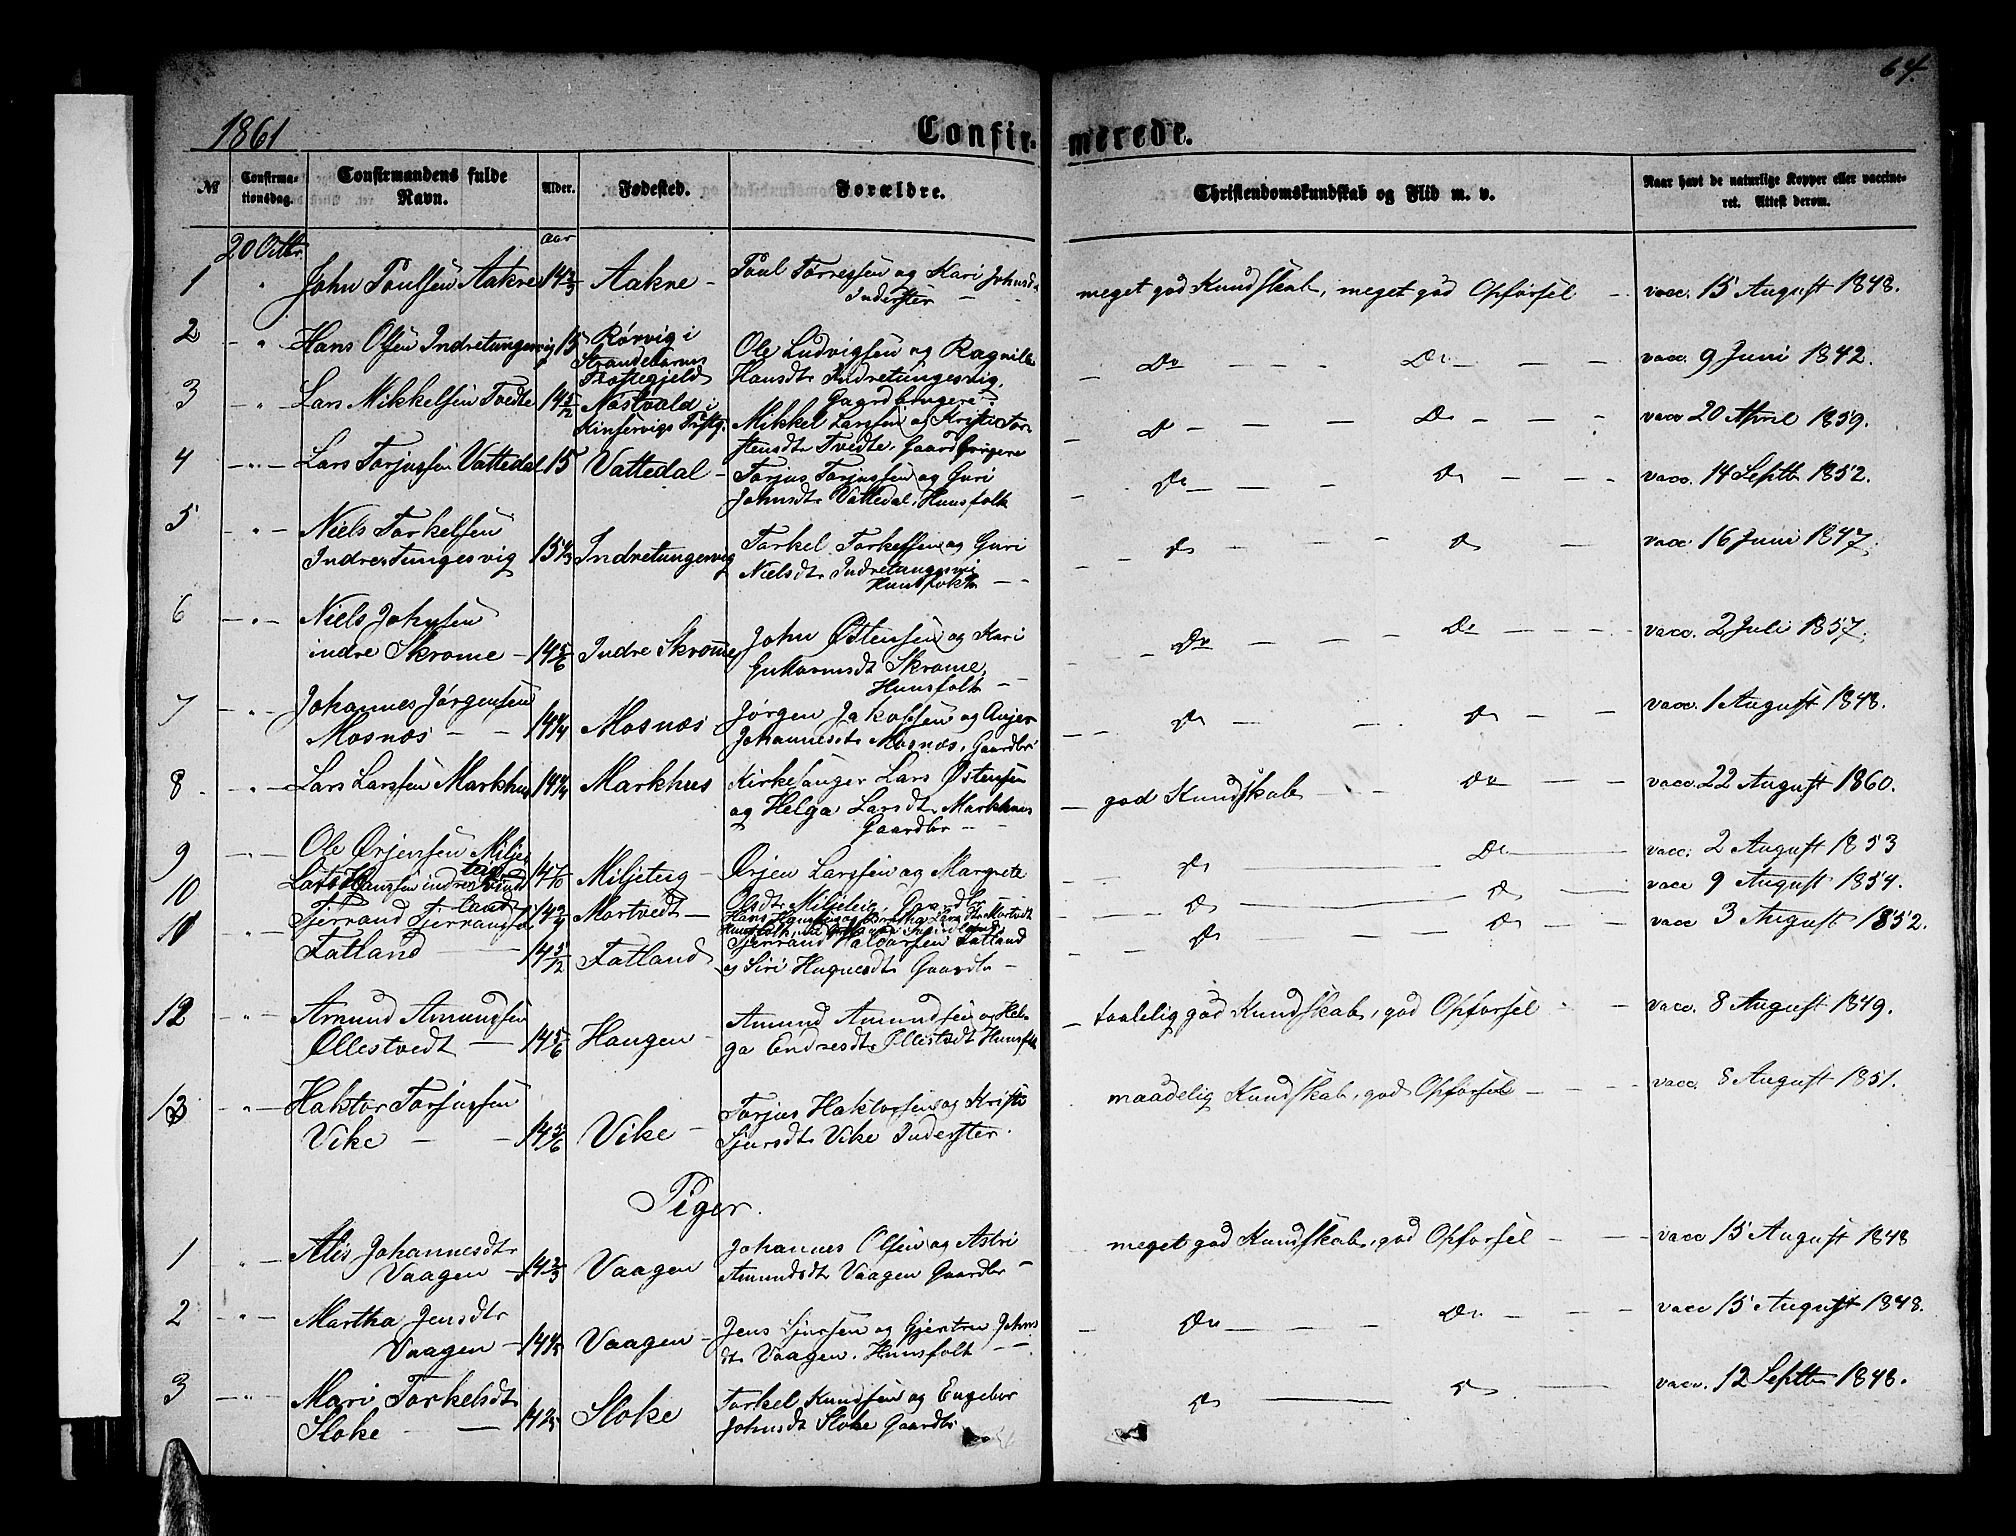 64.
1861 Confirmerede.
№ Confirmationsdag. Confirmandens fulde Navn. Alder. Fødested. Forældre. Christendomskundskab og Flid m. v. Naar havt de naturlige Kopper eller vaccineret. Attest derom.
20 Octbr. aar
1 " John Poulsen Aakre 14 2/3 Aakre - Poul Torresen og Kari Johnsdtr
Inderster - meget god Kundskab, meget god Opførsel - vacc. 15 August 1848.
2 - " Hans Olsen Indretungesvig 15 Rørvig i
Strandebarms
Præstegjeld Ole Ludvigsen og Ragnilde
Hansdtr Indretungesvig,
Gaardbrugere - Do - - - Do - - - vacc. 9 Juni 1842.
3 - " Lars Mikkelsen Tvedte 14 5/12 Nostvold i
Kinservigs Prstg. Mikkel Larssen og Kristi Tor-
stensdtr Tvedte, Gaardbrugere - Do - - - - Do - - - vacc 20 April 1859.
4 - " - Lars Torjussen Vattedal 15 Vattedal - Torjus Torjussen og Guri
Johnsdtr Vattedal, Huusfolk - Do - - - - Do - - - vacc. 14 Septbr 1852.
5 - " - Niels Torkelsen
Indre Tungesvig 15 1/3 Indretungesvig Torkel Torkelsen og Guri
Nielsdtr Indretungesvig
Huusfolk - - - Do - - - - Do - - vacc 16 Juni 1847.
6 - " - Niels Johnsen
indre Skrome - 14 5/6 Indre Skrome John Østensen og Kari
Guttormsdt Skrome,
Huusfolk - - - - Do - - - Do - - - - vacc. 2 Juli 1857.
7 - " - Johannes Jørgensen
Mosnæs - - 14 1/4 Mosnæs Jørgen Jakobsen og Anje
Johannesdtr Mosnæs, Gaardbr - - Do - - - Do - - vacc. 1 August 1848.
8 - " - Lars Larssen Markhus 14 1/4 Markhus Kirkesanger Lars Østensen
og Helga Larsdtr Markhuus
Gaardbr - - - god Kundskab - - Do - - vacc. 22 August 1860.
9 - " - Ole Ørjensen Miljeteig Miljeteig - Ørjen Larssen og Margrete
Olsdtr Miljeteig, Gaardbr - Do - Do - vacc. 2 August 1853
10 Mortvedt - Do - Do - vacc 9 August 1854.
11 Tjerrand Tjerrandsen
Fatland - - 14 5/12 Fatland Tjerrand Haldorsen Fatland
og Siri Hagnesdtr Gaardbr - - Do - Do - vacc 3 August 1852.
12 - " - Amund Amundsen
Øllestvedt - 14 5/6 Haugen - Amund Amundsen og Hel-
ga Endresdtr Øllestvedt Huusfolk - taalelig god Kundskab, god Opførsel - - vacc. 8 August 1849.
13 " - Haktor Torjussen
Vike - - 14 5/6 Vike - Torjus Haktorsen og Kristi
Sjursdtr Vike Inderster. maadelig Kundskab, god Opførsel - - - vacc. 8 August 1851.
Piger.
1 " - Alis Johannesdtr
Vaagen - 14 2/3 Vaagen Johannes Olsen og Astri
Amundsdtr Vaagen Gaardbr - meget god Kundskab, god Opførsel - - - vacc 15 August 1848
2 - " - Martha Jensdtr
Vaagen - Vaagen - Jens Sjursen og Gjertru Johns
dtr Vaagen. Huusfolk - - - Do - - - - Do - - - vacc 15 August 1848.
3 - " - Mari Torkelsdtr
Sloke - - Sloke Torkel Knudsen og Engebor
Johnsdt Sloke Gaardbr Do - Do - vacc. 12 Septbr 1848.